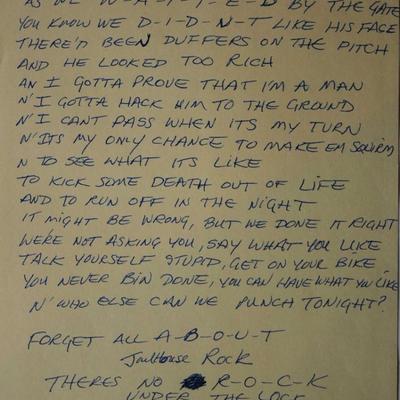 AS WE W-A-I-T-E-D BY THE GATE
YOU KNOW WE D-I-D-N-T LIKE HIS FACE
THERE'D BEEN DUFFERS ON THE PITCH
AND HE LOOKED TOO RICH
AN I GOTTA PROVE THAT I'M A MAN
N' I GOTTA HACK HIM TO THE GROUND
N' I CANT PASS WHEN ITS MY TURN
N' ITS MY ONLY CHANCE TO MAKE EM SQUIRM
N TO SEE WHAT ITS LIKE
TO KICK SOME DEATH OUT OF LIFE
AND TO RUN OFF IN THE NIGHT
IT MIGHT BE WRONG, BUT WE DONE IT RIGHT
WE'RE NOT ASKING YOU, SAY WHAT YOU LIKE
TALK YOURSELF STUPID, GET ON YOUR BIKE
YOU NEVER BIN DONE, YOU CAN HAVE WHAT YOU LIKE
N' WHO ELSE CAN WE PUNCH TONIGHT?
FORGET ALL A-B-O-U-T
JailHouse Rock
THERES NO R-O-C-K
UNDER THE LOCK